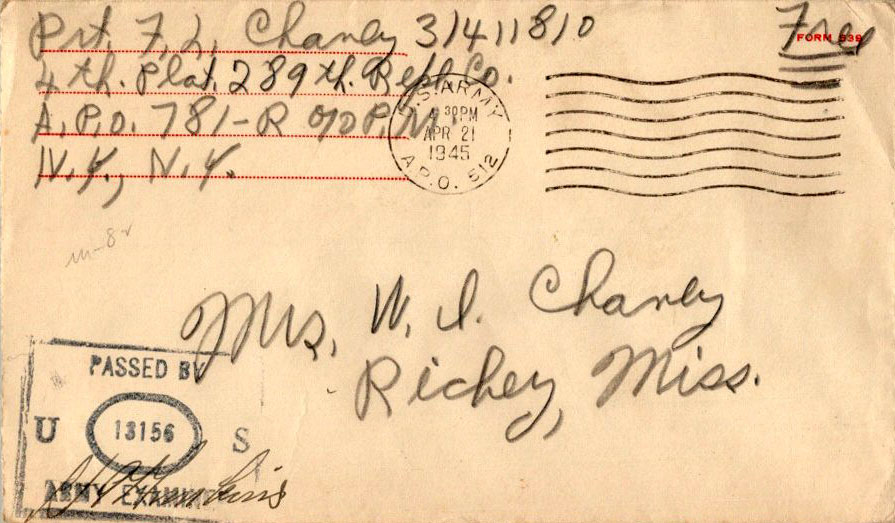 Pvt. F. L. Chaney 31411810
4 th. Plat. 289 th. Repl. Co.
A.P.O. 781-R c/o P.M.
N.Y., N.Y.
Free
FORM 539
U.S. ARMY
4 30PM
APR 21
1945
A.P.O. 512
m-82
Mrs. W. I. Chaney
Richey, Miss.
PASSED BY
U 13156 S
ARMY EXAMINER